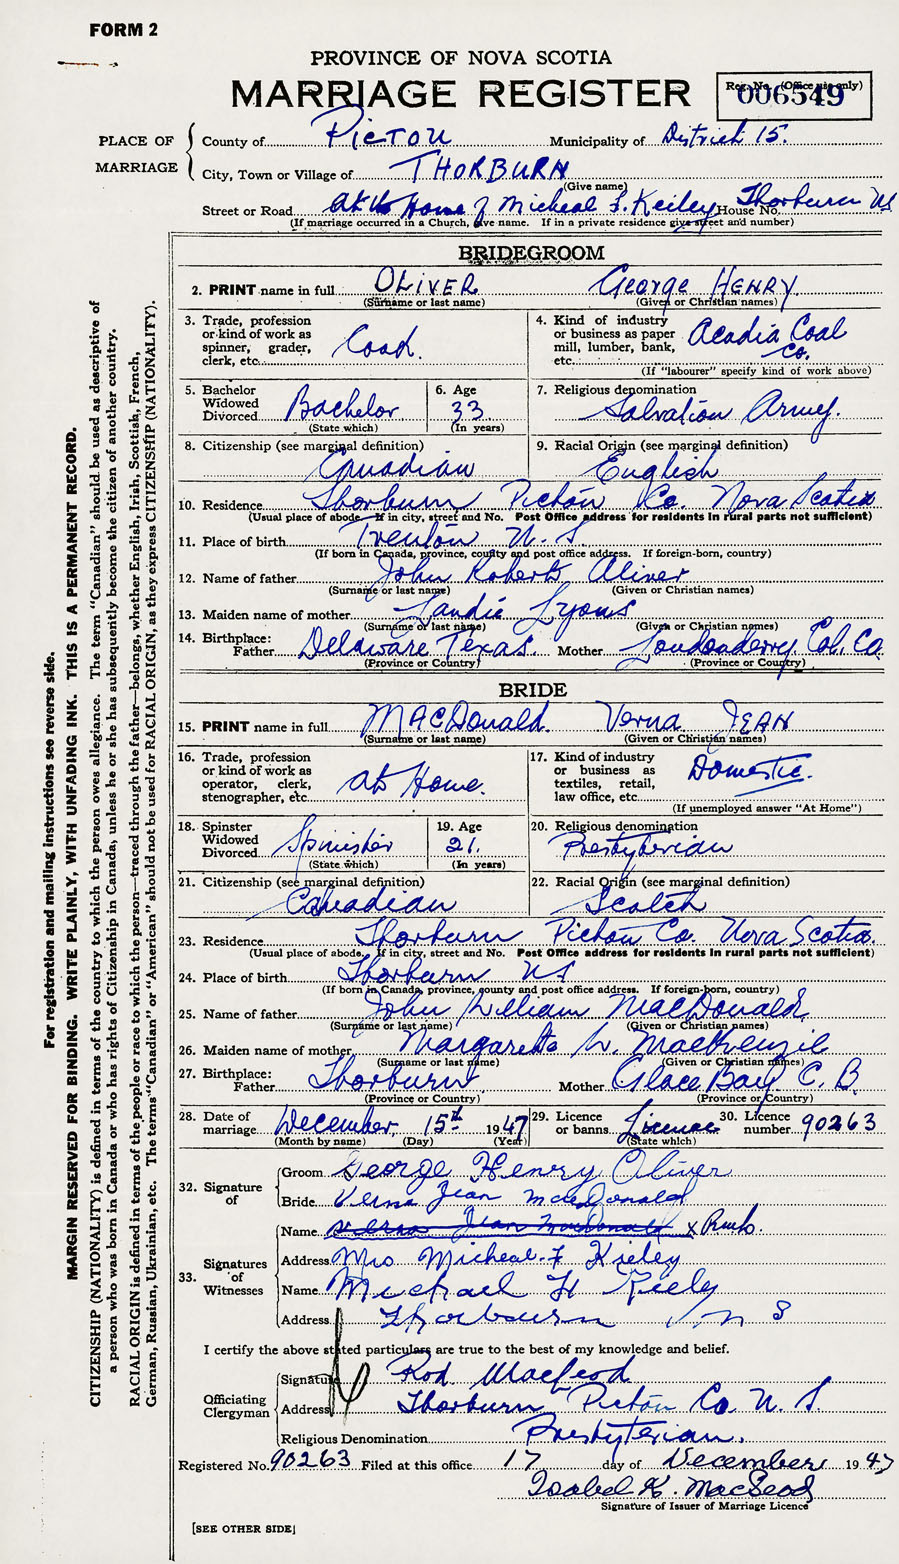 FORM 2
PROVINCE OF NOVA SCOTIA
MARRIAGE REGISTER
Reg. No. (Office use only)
006549
PLACE OF MARRIAGE
County of Pictou Municipality of District 15.
City, Town or Village of THORBURN
(Give name)
Street or Road At the Home of Micheal F. Keiley House No. Thorburn NS
(If marriage occurred in a Church, give name. If in a private residence give street and number)
BRIDEGROOM
2. PRINT name in full OLIVER George HENRY
(Surname or last name) (Given or Christian names)
3. Trade, profession or kind of work as spinner, grader, clerk, etc.
4. Kind of industry or business as paper mill, lumber, bank, etc. Acadia Coal Co.
(If "labourer" specify kind of work above)
5. Bachelor Widowed Divorced Bachelor
(State which)
6. Age 33
(In years)
7. Religious denomination Salvation Army.
8. Citizenship (see marginal definition) Canadian
9. Racial Origin (see marginal definition) English
10. Residence Thorburn Pictou Co. Nova Scotia
(Usual place of abode. If in city, street and No. Post Office address for residents in rural parts not sufficient)
11. Place of birth Trenton N. S
(If born in Canada, province, county and post office address. If foreign-born, country)
12. Name of father John Roberts Oliver
(Surname or last name) (Given or Christian names)
13. Maiden name of mother Lyons
(Surname or last name) (Given or Christian names)
14. Birthplace: Father Delaware Texas. Mother Londonderry Col. Co.
(Province or Country) (Province or Country)
BRIDE
15. PRINT name in full MACDonald. Verna JEAN
(Surname or last name) (Given or Christian names)
16. Trade, profession or kind of work as operator, clerk, stenographer, etc. At Home.
17. Kind of industry or business as textiles, retail, law office, etc. Domestic.
(If unemployed answer "At Home")
18. Spinster Widowed Divorced Spinister
(State which)
19. Age 21.
(In years)
20. Religious denomination Presbyterian
21. Citizenship (see marginal definition) Canadian
22. Racial Origin (see marginal definition) Scotch
23. Residence Thorburn Pictou Co. Nova Scotia.
(Usual place of abode. If in city, street and No. Post Office address for residents in rural parts not sufficient)
24. Place of birth Thorburn NS
(If born in Canada, province, county and post office address. If foreign-born, country)
25. Name of father John William MacDonald
(Surname or last name) (Given or Christian names)
26. Maiden name of mother Margaretta W. MacKenzie
(Surname or last name) (Given or Christian names)
27. Birthplace: Father Thorburn Mother Glace Bay C. B.
(Province or Country) (Province or Country)
28. Date of marriage December, 15th 1947
(Month by name) (Day) (Year)
29. Licence or banns License
(State which)
30. Licence number 90263
32. Signature of
Groom George Henry Oliver
Bride Verna Jean MacDonald
33. Signatures of Witnesses
Name Verna Jean MacDonald x
Address Mrs Micheal. F Kieley
Name Michael H Kiely
Address Thorburn N S
I certify the above stated particulars are true to the best of my knowledge and belief.
Officiating Clergyman
Signature Rod MacLeod
Address Thorburn Pictou Co. N. S.
Religious Denomination Presbyterian.
Registered No. 90263 Filed at this office 17 day of December 1947
Isobel K. MacLeod
Signature of Issuer of Marriage Licence
[SEE OTHER SIDE]
For registration and mailing instructions see reverse side.
MARGIN RESERVED FOR BINDING. WRITE PLAINLY, WITH UNFADING INK. THIS IS A PERMANENT RECORD.
CITIZENSHIP (NATIONALITY) is defined in terms of the country to which the person owes allegiance. The term "Canadian" should be used as descriptive of
a person who was born in Canada or who has rights of Citizenship in Canada, unless he or she has subsequently become the citizen of another country.
RACIAL ORIGIN is defined in terms of the people or race to which the person—traced through the father—belongs, whether English, Irish, Scottish, French,
German, Russian, Ukrainian, etc. The terms "Canadian" or "American" should not be used for RACIAL ORIGIN, as they express CITIZENSHIP (NATIONALITY).